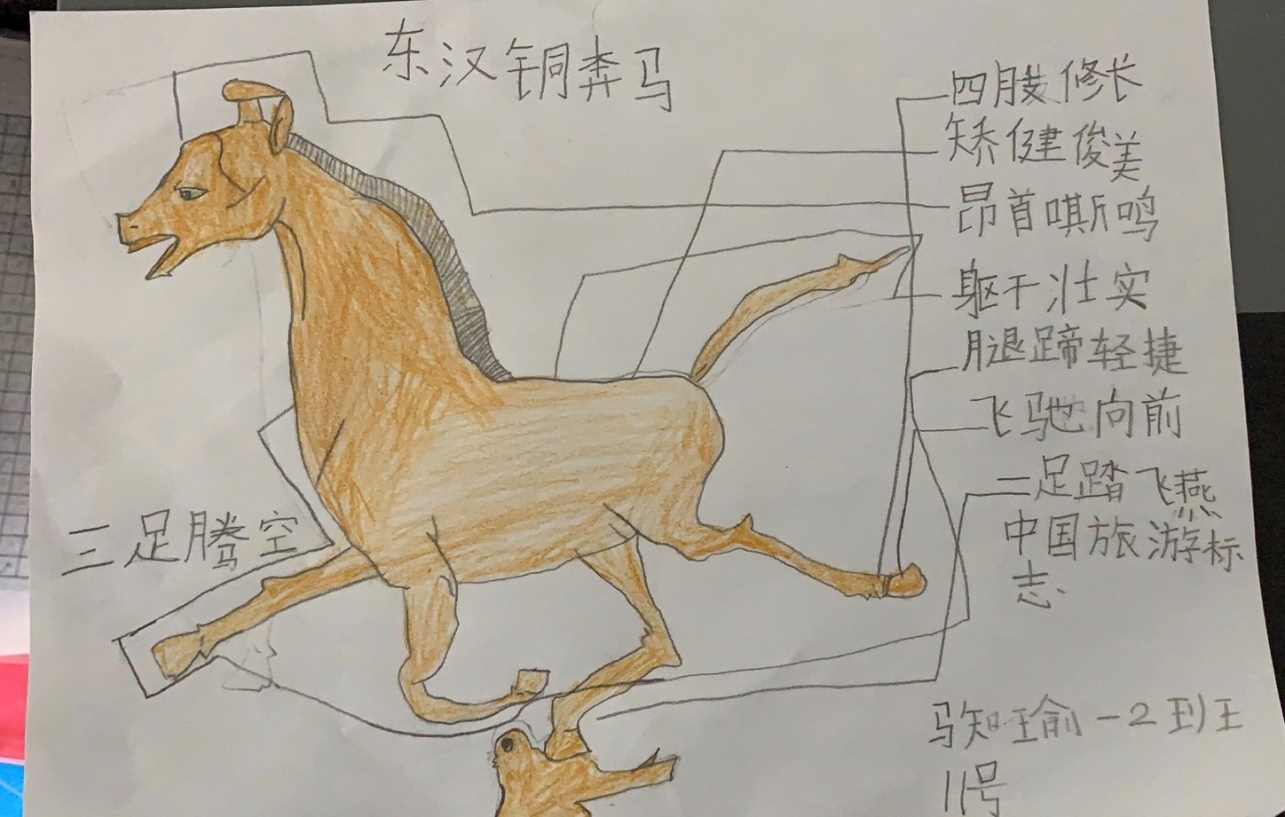 东汉铜奔马
四肢修长
矫健俊美
昂首嘶鸣
躯干壮实
腿蹄轻捷
飞驰向前
三足腾空
一足踏飞燕
中国旅游标
志
马知瑜一2班
11号